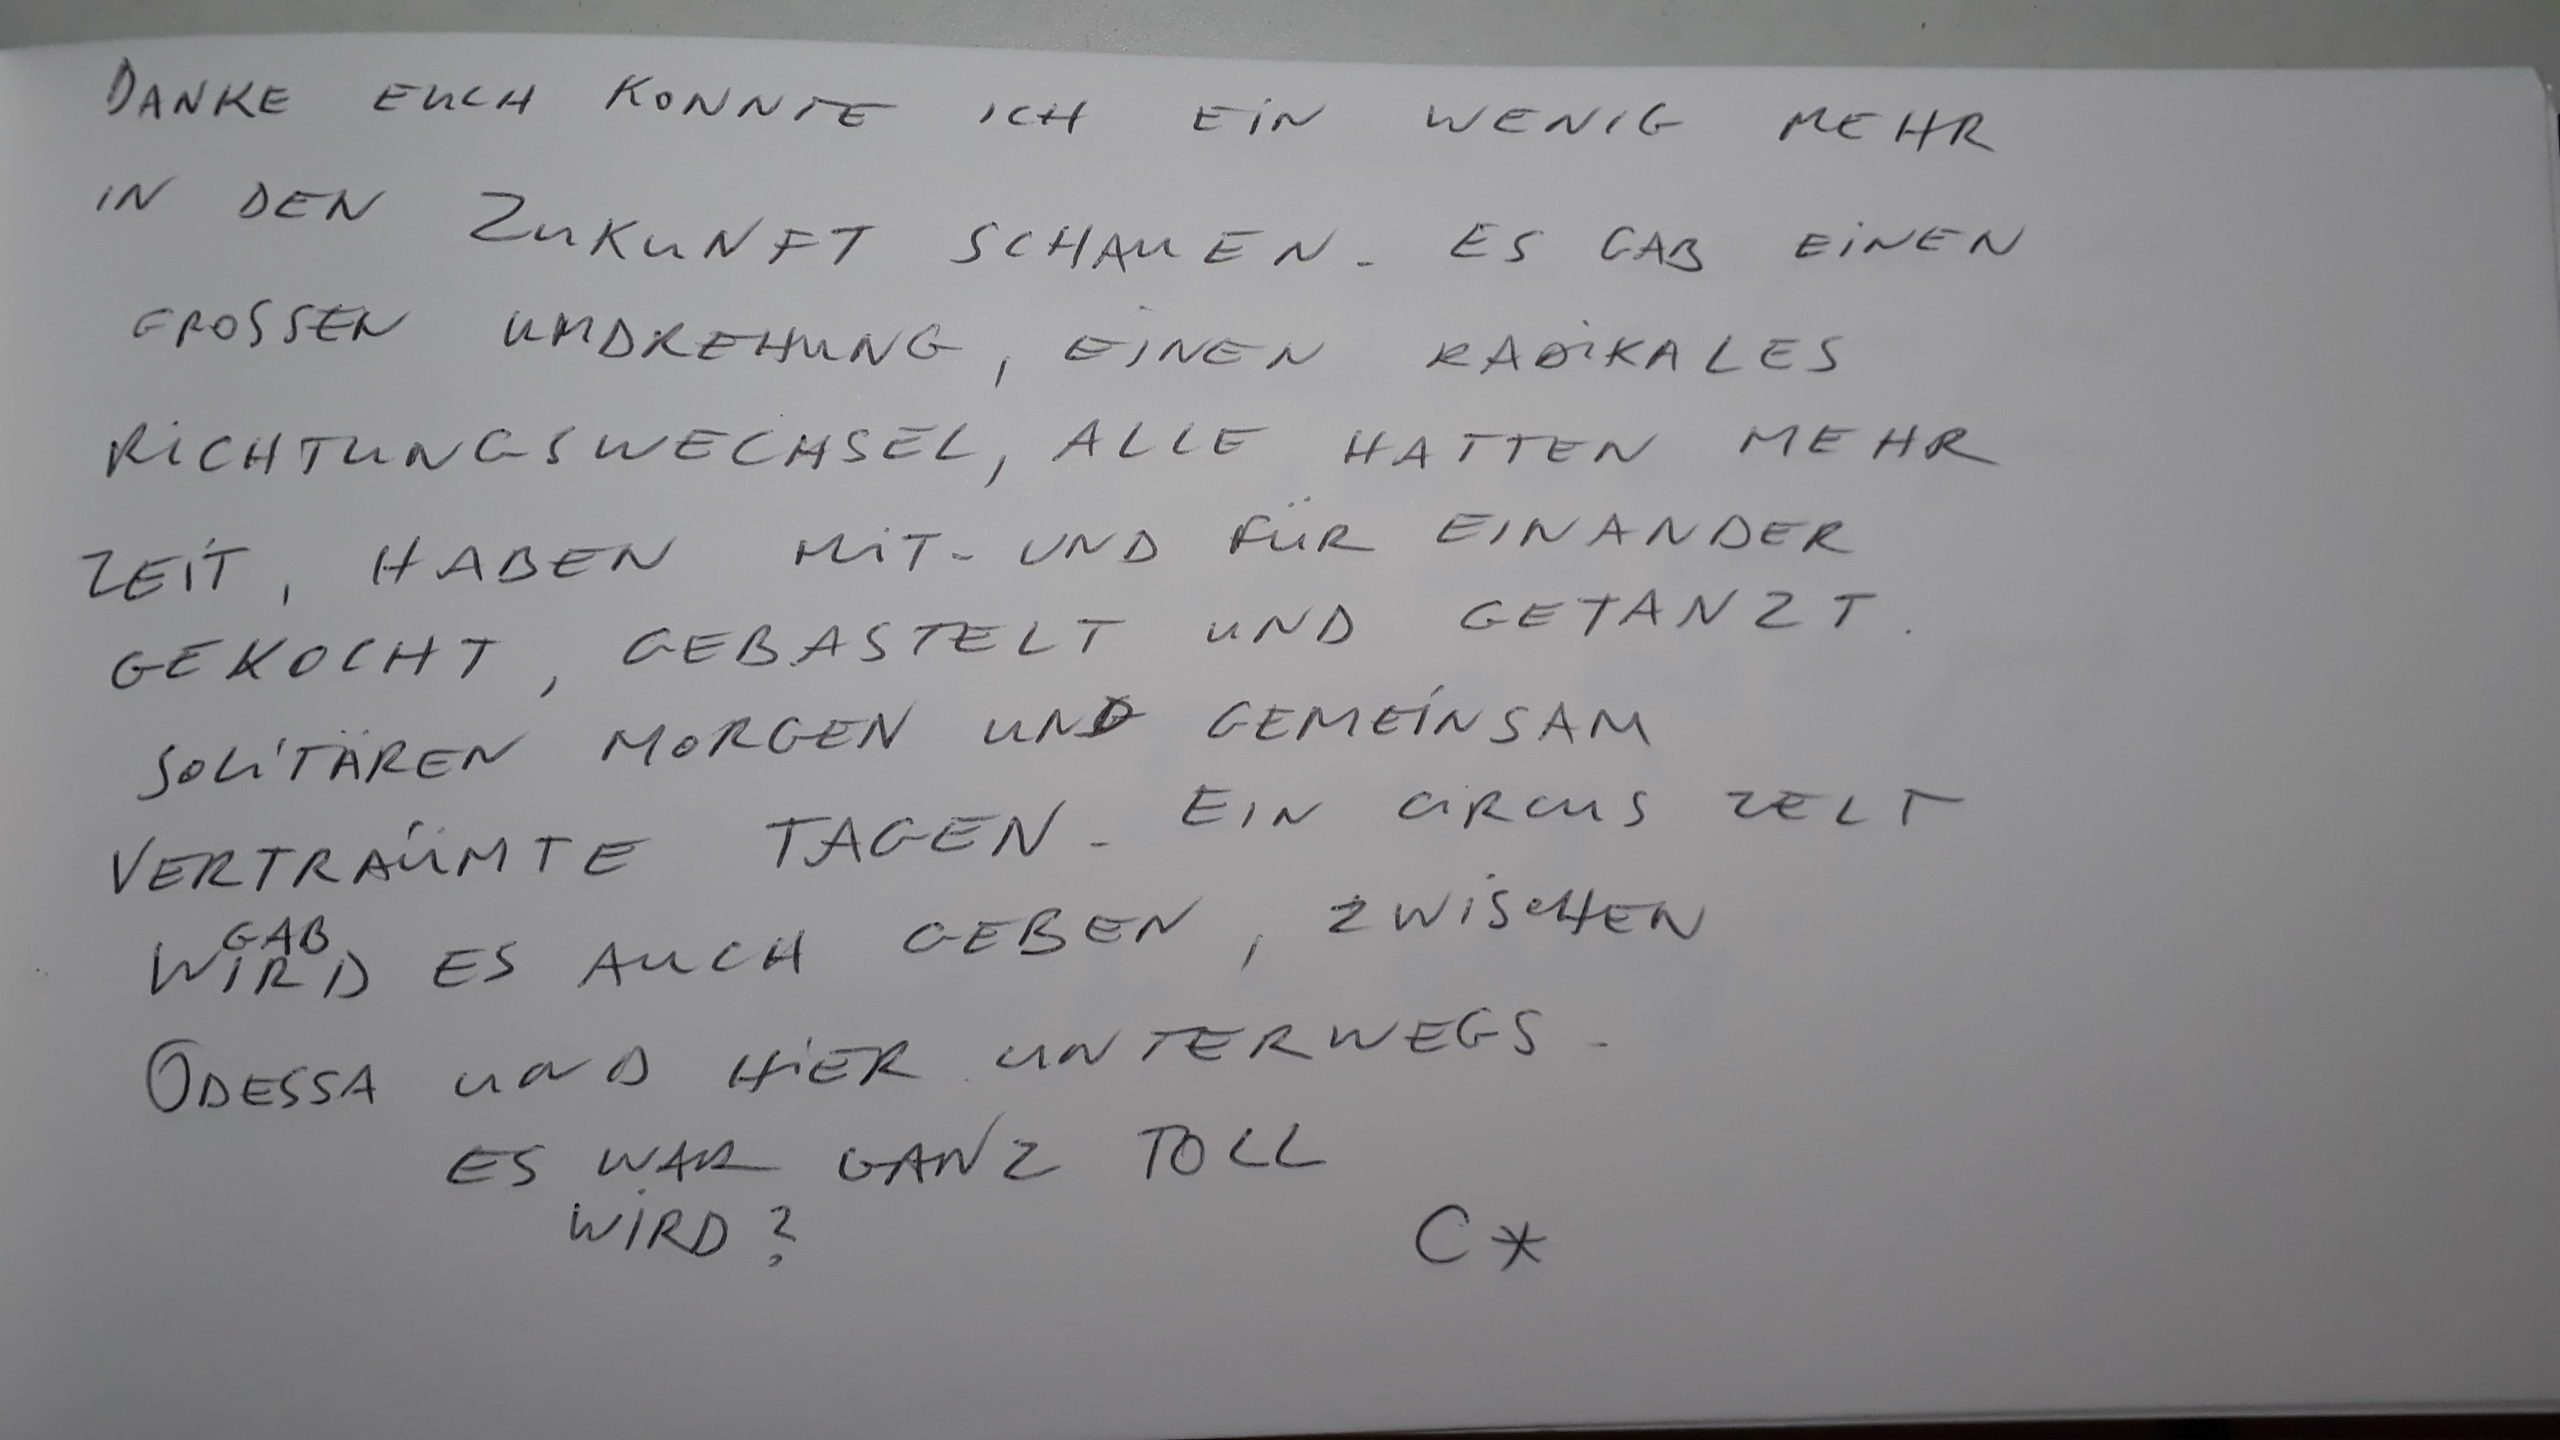 DANKE EUCH KONNTE ICH EIN WENIG MEHR
IN DEN ZUKUNFT SCHAUEN. ES GAB EINEN
GROSSEN UMDREHUNG, EINEN RADIKALES
RICHTUNGSWECHSEL, ALLE HATTEN MEHR
ZEIT, HABEN MIT- UND FÜR EINANDER
GEKOCHT, GEBASTELT UND GETANZT.
SOLITÄREN MORGEN UND GEMEINSAM
VERTRAÜMTE TAGEN. EIN CIRCUS ZELT
GAB
WIRD ES AUCH GEBEN, ZWISCHEN
ODESSA UND HIER UNTERWEGS.
ES WAR GANZ TOLL
WIRD?
C*